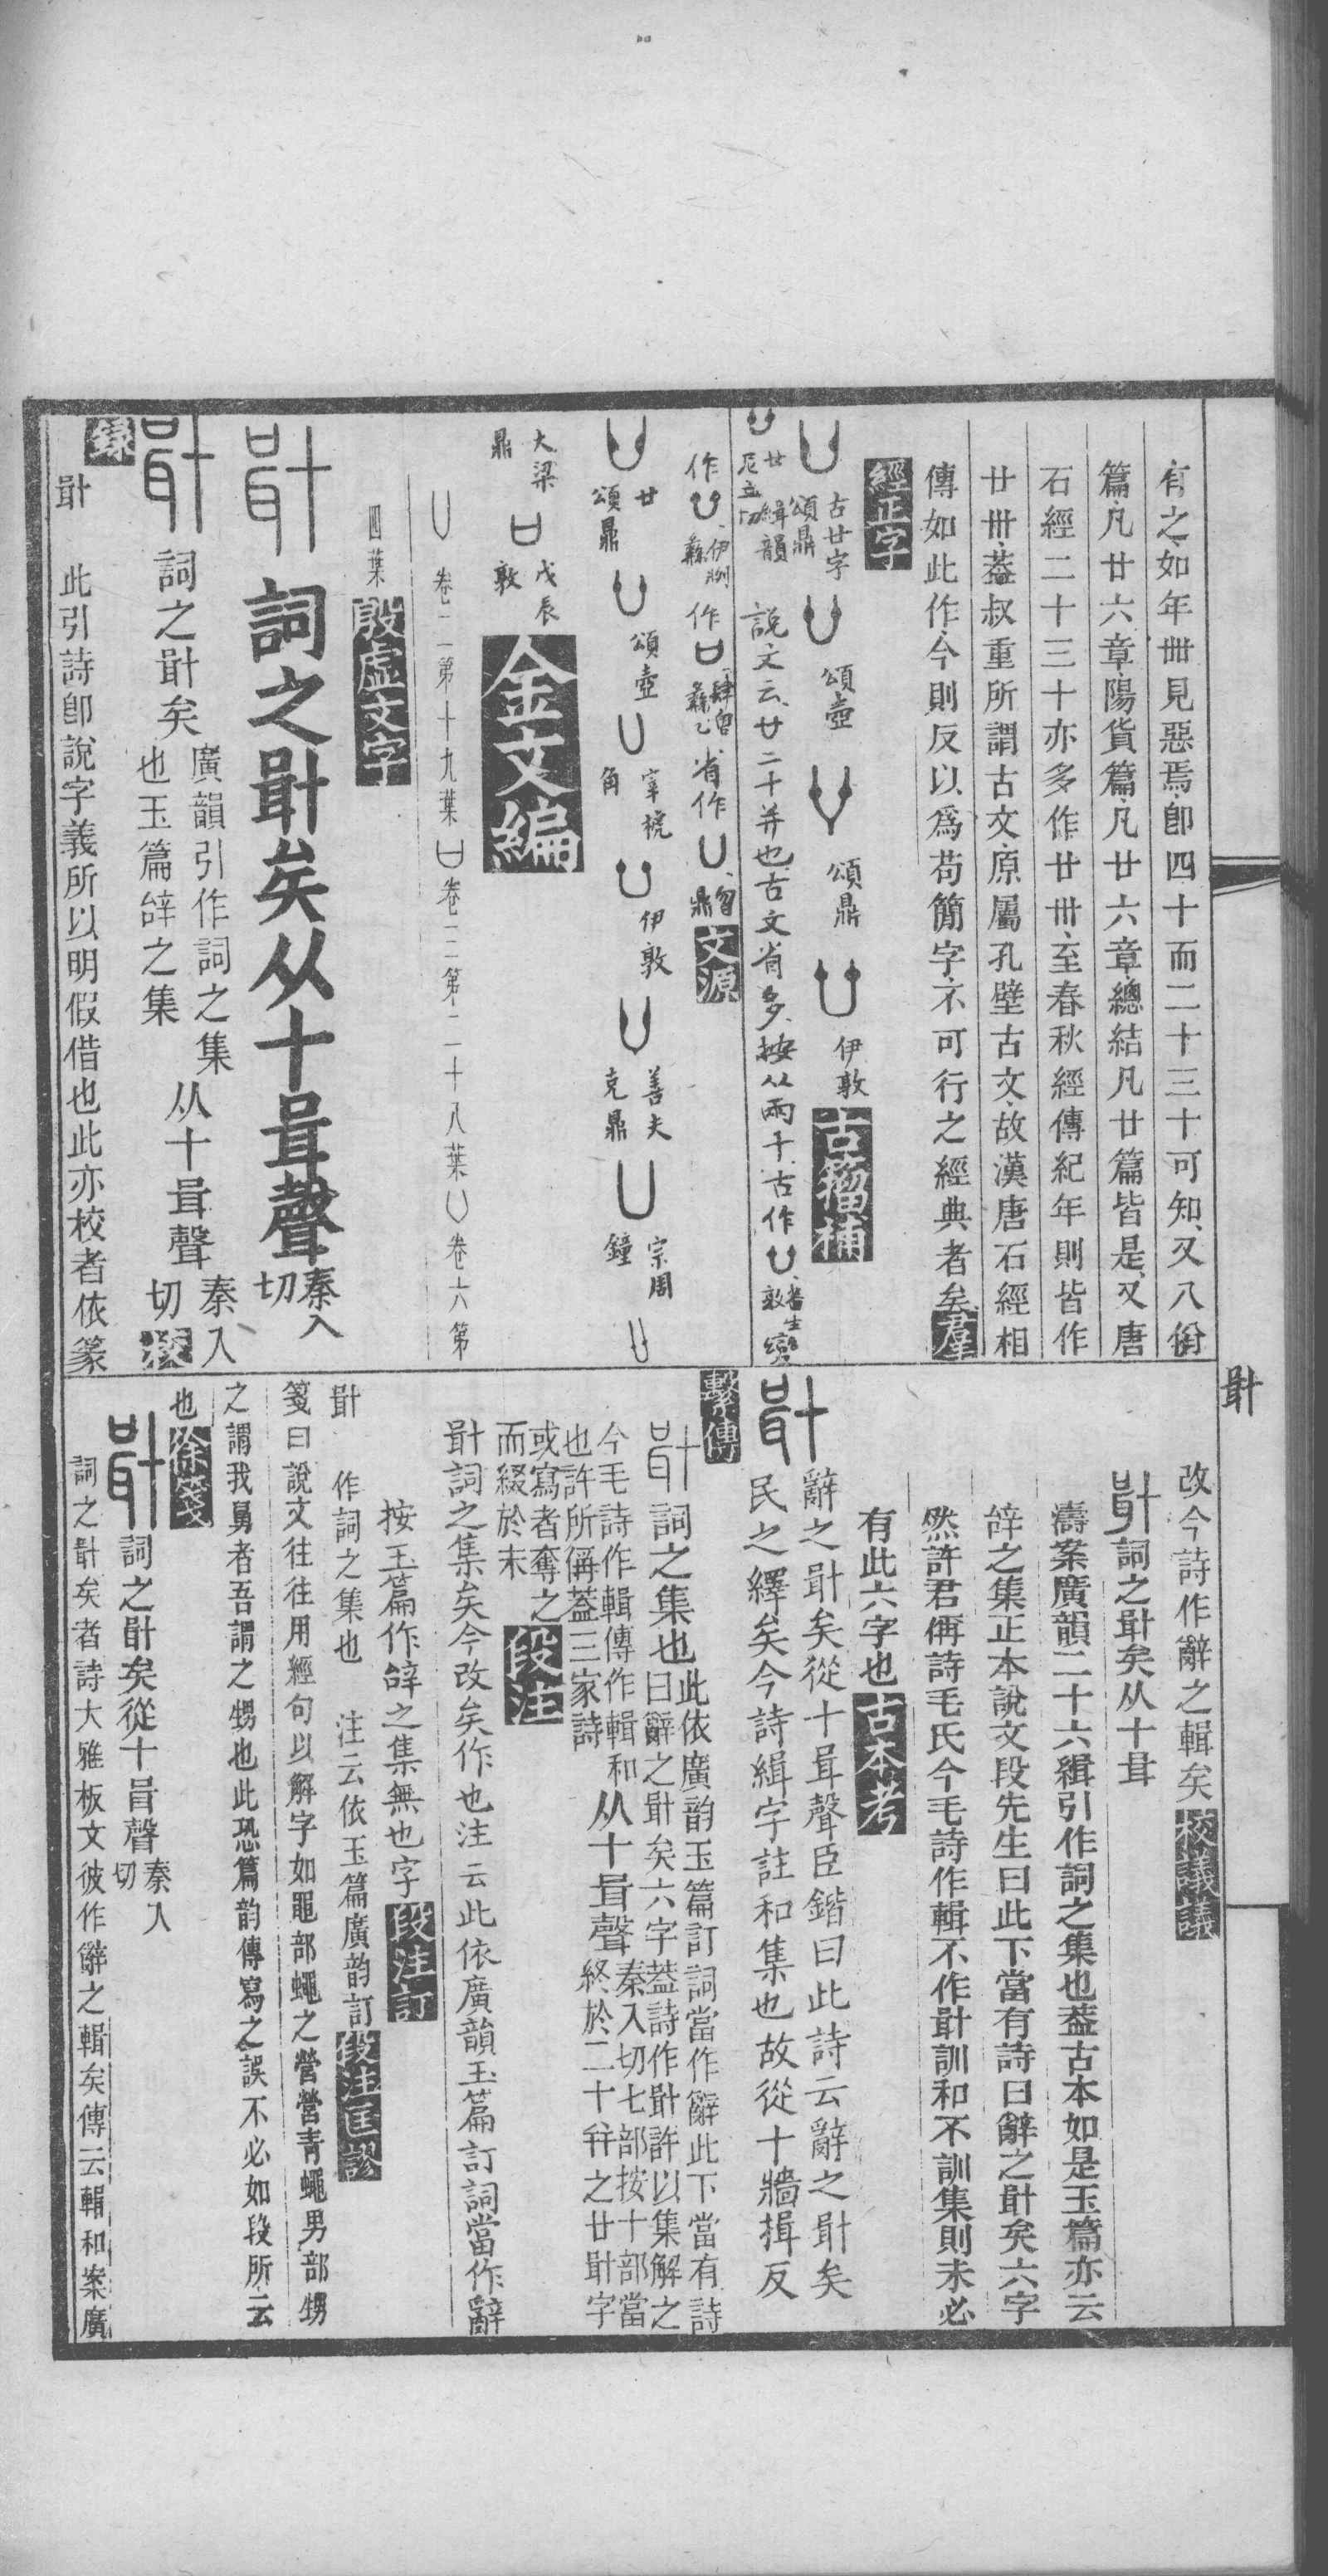 有之如年卌見惡焉卽四十而二十三十可知又八佾
篇凡廿六章陽貨篇凡廿六章總結凡廿篇皆是又唐
石經二十三十亦多作廿卅至春秋經傳紀年則皆作
廿卅葢叔重所謂古文原屬孔壁古文故漢唐石經相
傳如此作今則反以爲苟簡字不可行之經典者矣羣
經正字
古廿字
頌鼎
頌壺
頌鼎
伊敦
古籀補
廿
緝韻
說文云廿二十并也古文省多按从兩十古作
作
作
省作
文源
廿
頌鼎
頌壺
宰椃
角
伊敦
善夫
克鼎
宗周
鐘
大梁
鼎
戊辰
敦
金文編
卷一第十九葉
卷二第二十八葉
卷六第
四葉
殷虛文字
卙
詞之卙矣从十咠聲
秦入
切
卙
詞之卙矣
廣韻引作詞之集
也玉篇辝之集
从十咠聲
秦入
切
校
錄
卙
此引詩卽說字義所以明假借也此亦校者依篆
卙
改今詩作辭之輯矣
校議議
卙
詞之卙矣从十咠
濤案廣韻二十六緝引作詞之集也葢古本如是玉篇亦云
辝之集正本說文段先生曰此下當有詩曰辭之卙矣六字
然許君偁詩毛氏今毛詩作輯不作卙訓和不訓集則未必
有此六字也
古本考
卙
辭之卙矣從十咠聲臣鍇曰此詩云辭之卙矣
民之繹矣今詩緝字註和集也故從十牆揖反
繫傳
卙
詞之集也
此依廣韵玉篇訂詞當作辭此下當有詩
曰辭之卙矣六字葢詩作卙許以集解之
今毛詩作輯傳作輯和
也許所偁葢三家詩
从十咠聲
秦入切七部按十部當
終於二十幷之廿卙字
或寫者奪之
而綴於末
段注
卙詞之集矣今改矣作也注云此依廣韻玉篇訂詞當作辭
按玉篇作辝之集無也字
段注訂
卙
作詞之集也
注云依玉篇廣韵訂
段注匡謬
箋曰說文往往用經句以解字如黽部蠅之營營青蠅男部甥
之謂我舅者吾謂之甥也此恐篇韵傳寫之誤不必如段所云
也
徐箋
卙
詞之卙矣從十咠聲
秦入
切
詞之卙矣者詩大雅板文彼作辭之輯矣傳云輯和案廣